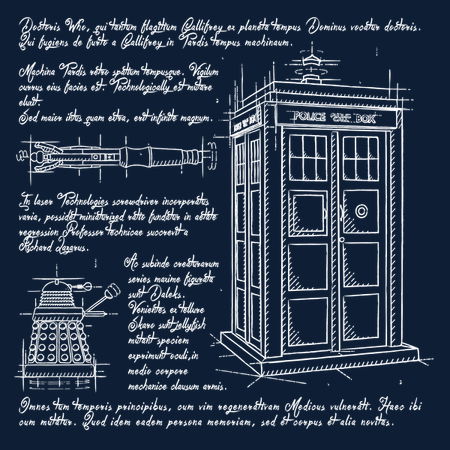 Doctoris Who, qui tantum flagitium Gallifrey ex planeta tempus Dominus vocatur doctoris.
Qui fugiens de furto a Gallifrey in Tardis tempus machinaum.
Machina Tardis retro spatium tempusque. Vigilum
currus eius facies est. Technologically est mutare
eluat.
Sed maior itus quam extra, erit infinite magnum.
POLICE BOX
In laser Technologies screwdriver incorporatus
varia, possidet miniaturized rate funditur in aetate
regression Professor technicae succurrit a
Richard Lazarus.
Ac subinde creaturarum
series maxime figurita
sunt Daleks.
Venientes ex tellure
Skaro sunt jellyfish
mutant speciem
exprimunt odii, in
medio corpore
mechanice clausum armis.
Omnes tum temporis principibus, cum vim regenerativam Medicus vulneratt. Haec ibi
cum mutatur. Quod idem eadem persona memoriam, sed et corpus et alia novitas.